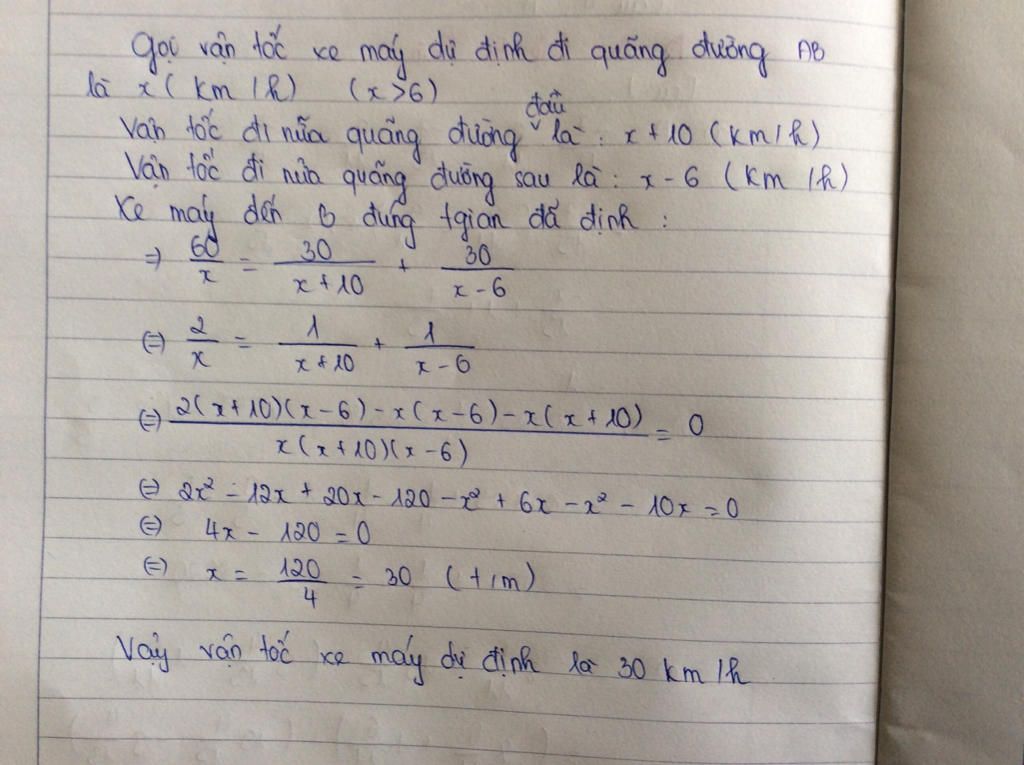 Gọi vận tốc xe máy dự định đi quãng đường AB
là x ( km / h) (x >6)
Vận tốc đi nữa quãng đường đầu là : x + 10 ( km / h)
Vận tốc đi nửa quãng đường sau là : x - 6 ( km / h)
Xe máy đến B đúng tgian đã định :
⇒ 60/x = 30/(x + 10) + 30/(x - 6)
⇔ 2/x = 1/(x + 10) + 1/(x - 6)
⇔ (2(x + 10)(x - 6) - x(x - 6) - x(x + 10))/(x(x + 10)(x - 6)) = 0
⇔ 2x² - 12x + 20x - 120 - x² + 6x - x² - 10x = 0
⇔ 4x - 120 = 0
⇔ x = 120/4 = 30 (t/m)
Vậy vận tốc xe máy dự định là 30 km / h